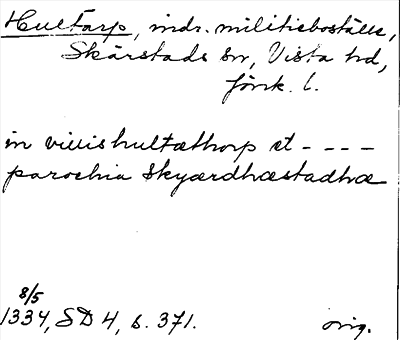 Hultarp, indr. militieboställe,
Skärstads sn, Vista hd,
Jönk. l.
in villis hultæthorp et - - - -
parochia Skyærdhæstadhæ
8/5
1334, SD 4, s. 371.
orig.